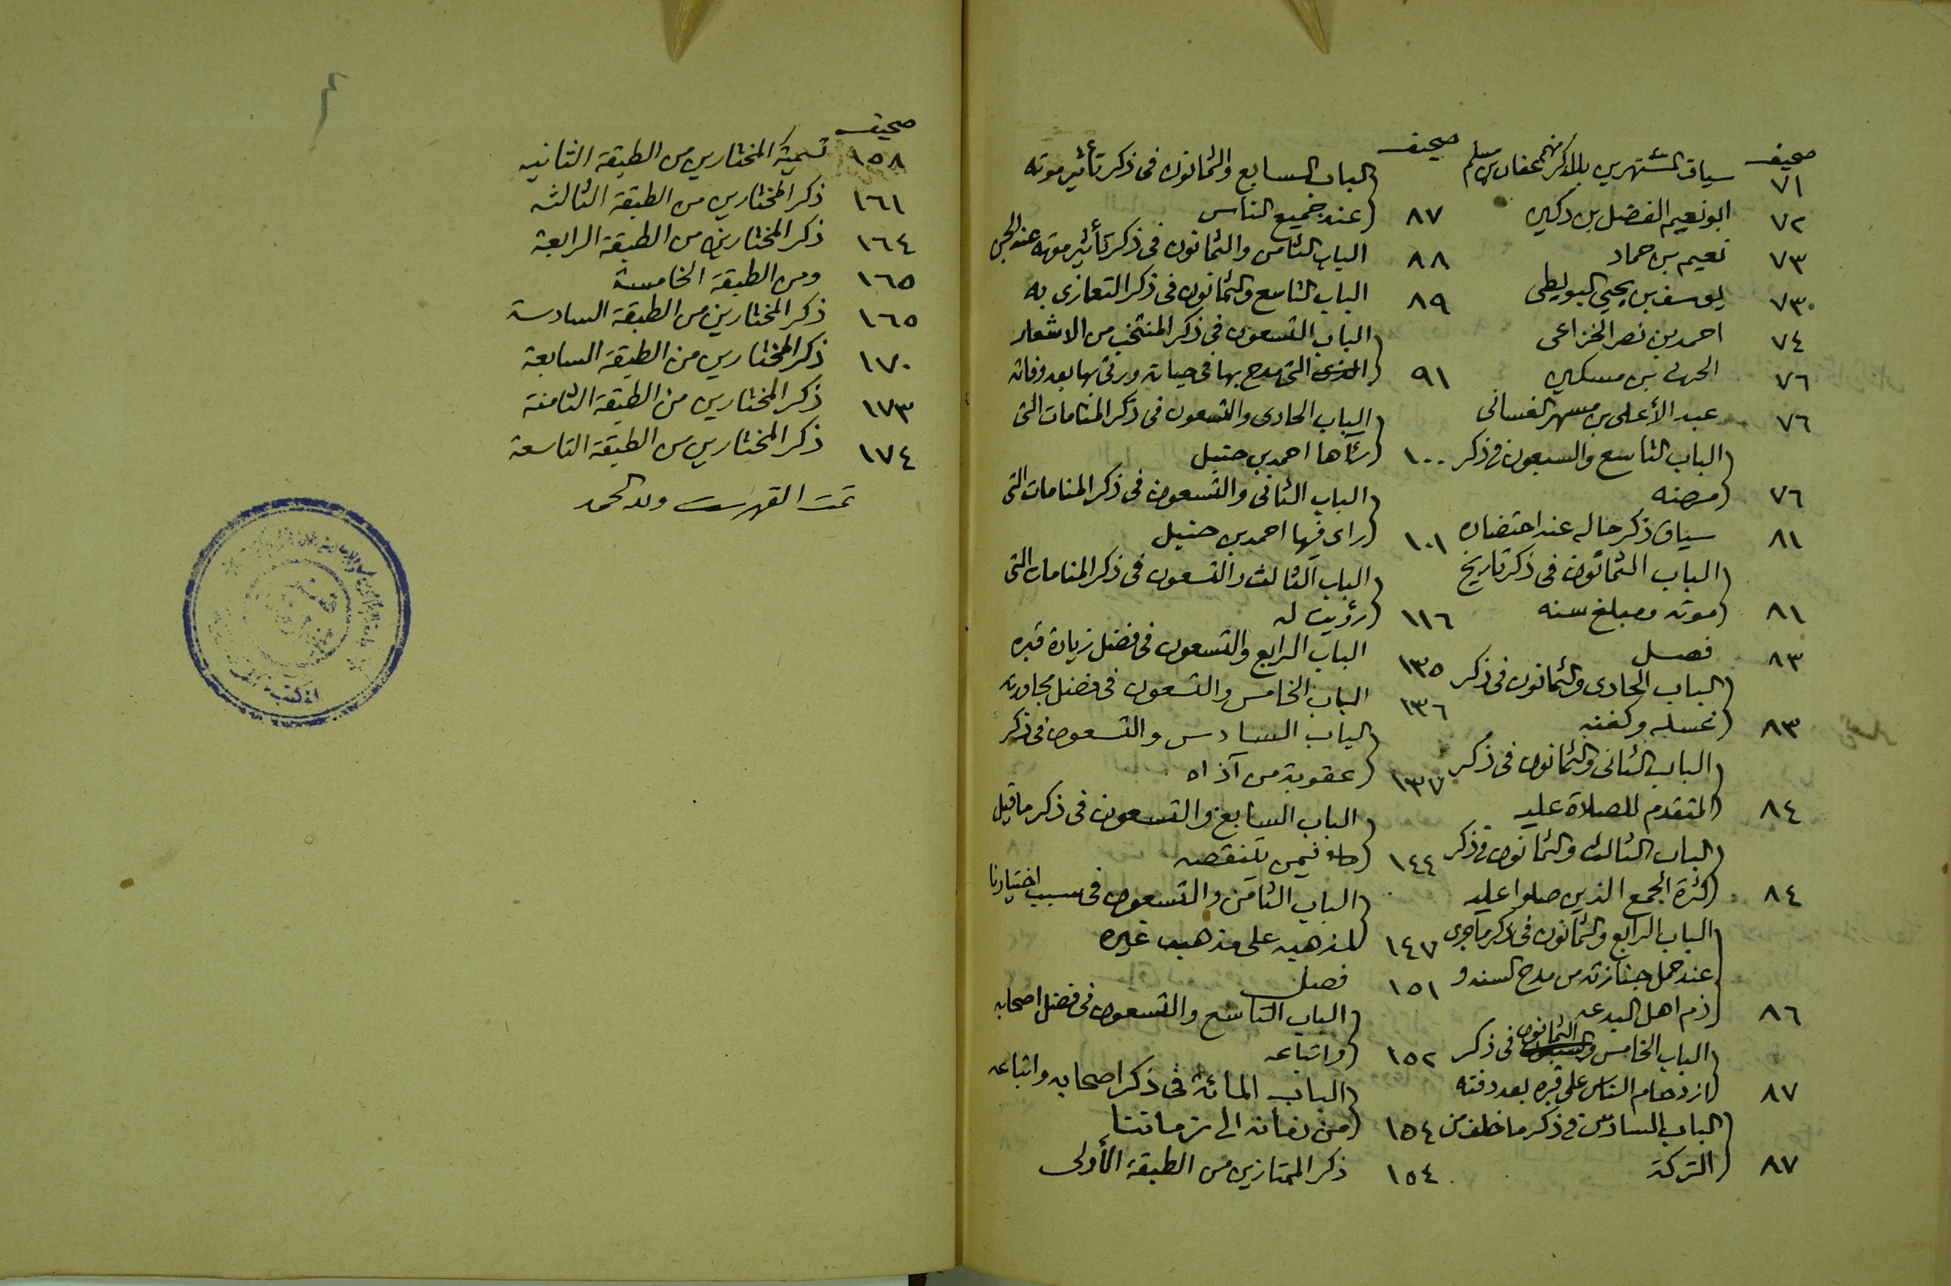 صحيفه
٧١ سياق المشتهرين بالذكر منهم عفان بن مسلم
٧٢ ابو نعيم الفضل بن دكين
٧٣ نعيم بن حماد
٧٣ يوسف بن يحيى البويطى
٧٤ احمد بن نصر الخزاعى
٧٦ الحرث بن مسكين
٧٦ عبد الأعلى بن مسهر الغسانى
الباب التاسع والسبعون فى ذكر
٧٦ مرضه
٨١ سياق ذكر حاله عند احتضاره
الباب الثمانون فى ذكر تاريخ
٨١ موته ومبلغ سنه
٨٣ فصل
الباب الحادى والثمانون فى ذكر
٨٣ غسله وكفنه
الباب الثانى والثمانون فى ذكر
٨٤ المتقدم للصلاة عليه
الباب الثالث والثمانون فى ذكر
٨٤ كثرة الجمع الذين صلوا عليه
الباب الرابع والثمانون فى ذكر ماجرى
عند حمل جنازته من مدح السنه و
٨٦ ذم اهل البدعه
الباب الخامس والثمانون فى ذكر
٨٧ ازدحام الناس على قبره بعد دفنه
الباب السادس فى ذكر ما خلف من
٨٧ التركة
صحيفه
الباب السابع والثمانون فى ذكر تأثير موته
٨٧ عند جميع الناس
٨٨ الباب الثامن والثمانون فى ذكر تأثير موته عند الجن
٨٩ الباب التاسع والثمانون فى ذكر التعازى به
الباب التسعون فى ذكر المنتخب من الاشعار
٩١ التى مدح بها فى حياته ورثى بها بعد وفاته
الباب الحادى والتسعون فى ذكر المنامات التى
١٠٠ رآها احمد بن حنبل
الباب الثانى والتسعون فى ذكر المنامات التى
١٠١ راى فيها احمد بن حنبل
الباب الثالث والتسعون فى ذكر المنامات التى
١١٦ رؤيت له
١٣٥ الباب الرابع والتسعون فى فضل زيارة قبره
١٣٦ الباب الخامس والتسعون فى فضل مجاورته
الباب السادس والتسعون فى ذكر
١٣٧ عقوبة من آذاه
الباب السابع والتسعون فى ذكر ما قيل
١٤٤ فيمن يتنقصه
الباب الثامن والتسعون فى سبب اختيارنا
١٤٧ لمذهبه على مذهب غيره
١٥١ فصل
الباب التاسع والتسعون فى فضل اصحابه
١٥٢ واتباعه
الباب المائة فى ذكر اصحابه واتباعه
١٥٤ من زمانه الى زماننا
١٥٤ ذكر المختارين من الطبقة الأولى
صحيفه
١٥٨ تسمية المختارين من الطبقة الثانيه
١٦١ ذكر المختارين من الطبقة الثالثه
١٦٤ ذكر المختارين من الطبقة الرابعة
١٦٥ ومن الطبقة الخامسة
١٦٥ ذكر المختارين من الطبقة السادسة
١٧٠ ذكر المختارين من الطبقة السابعة
١٧٣ ذكر المختارين من الطبقة الثامنة
١٧٤ ذكر المختارين من الطبقة التاسعة
تمت الفهرست ولله الحمد